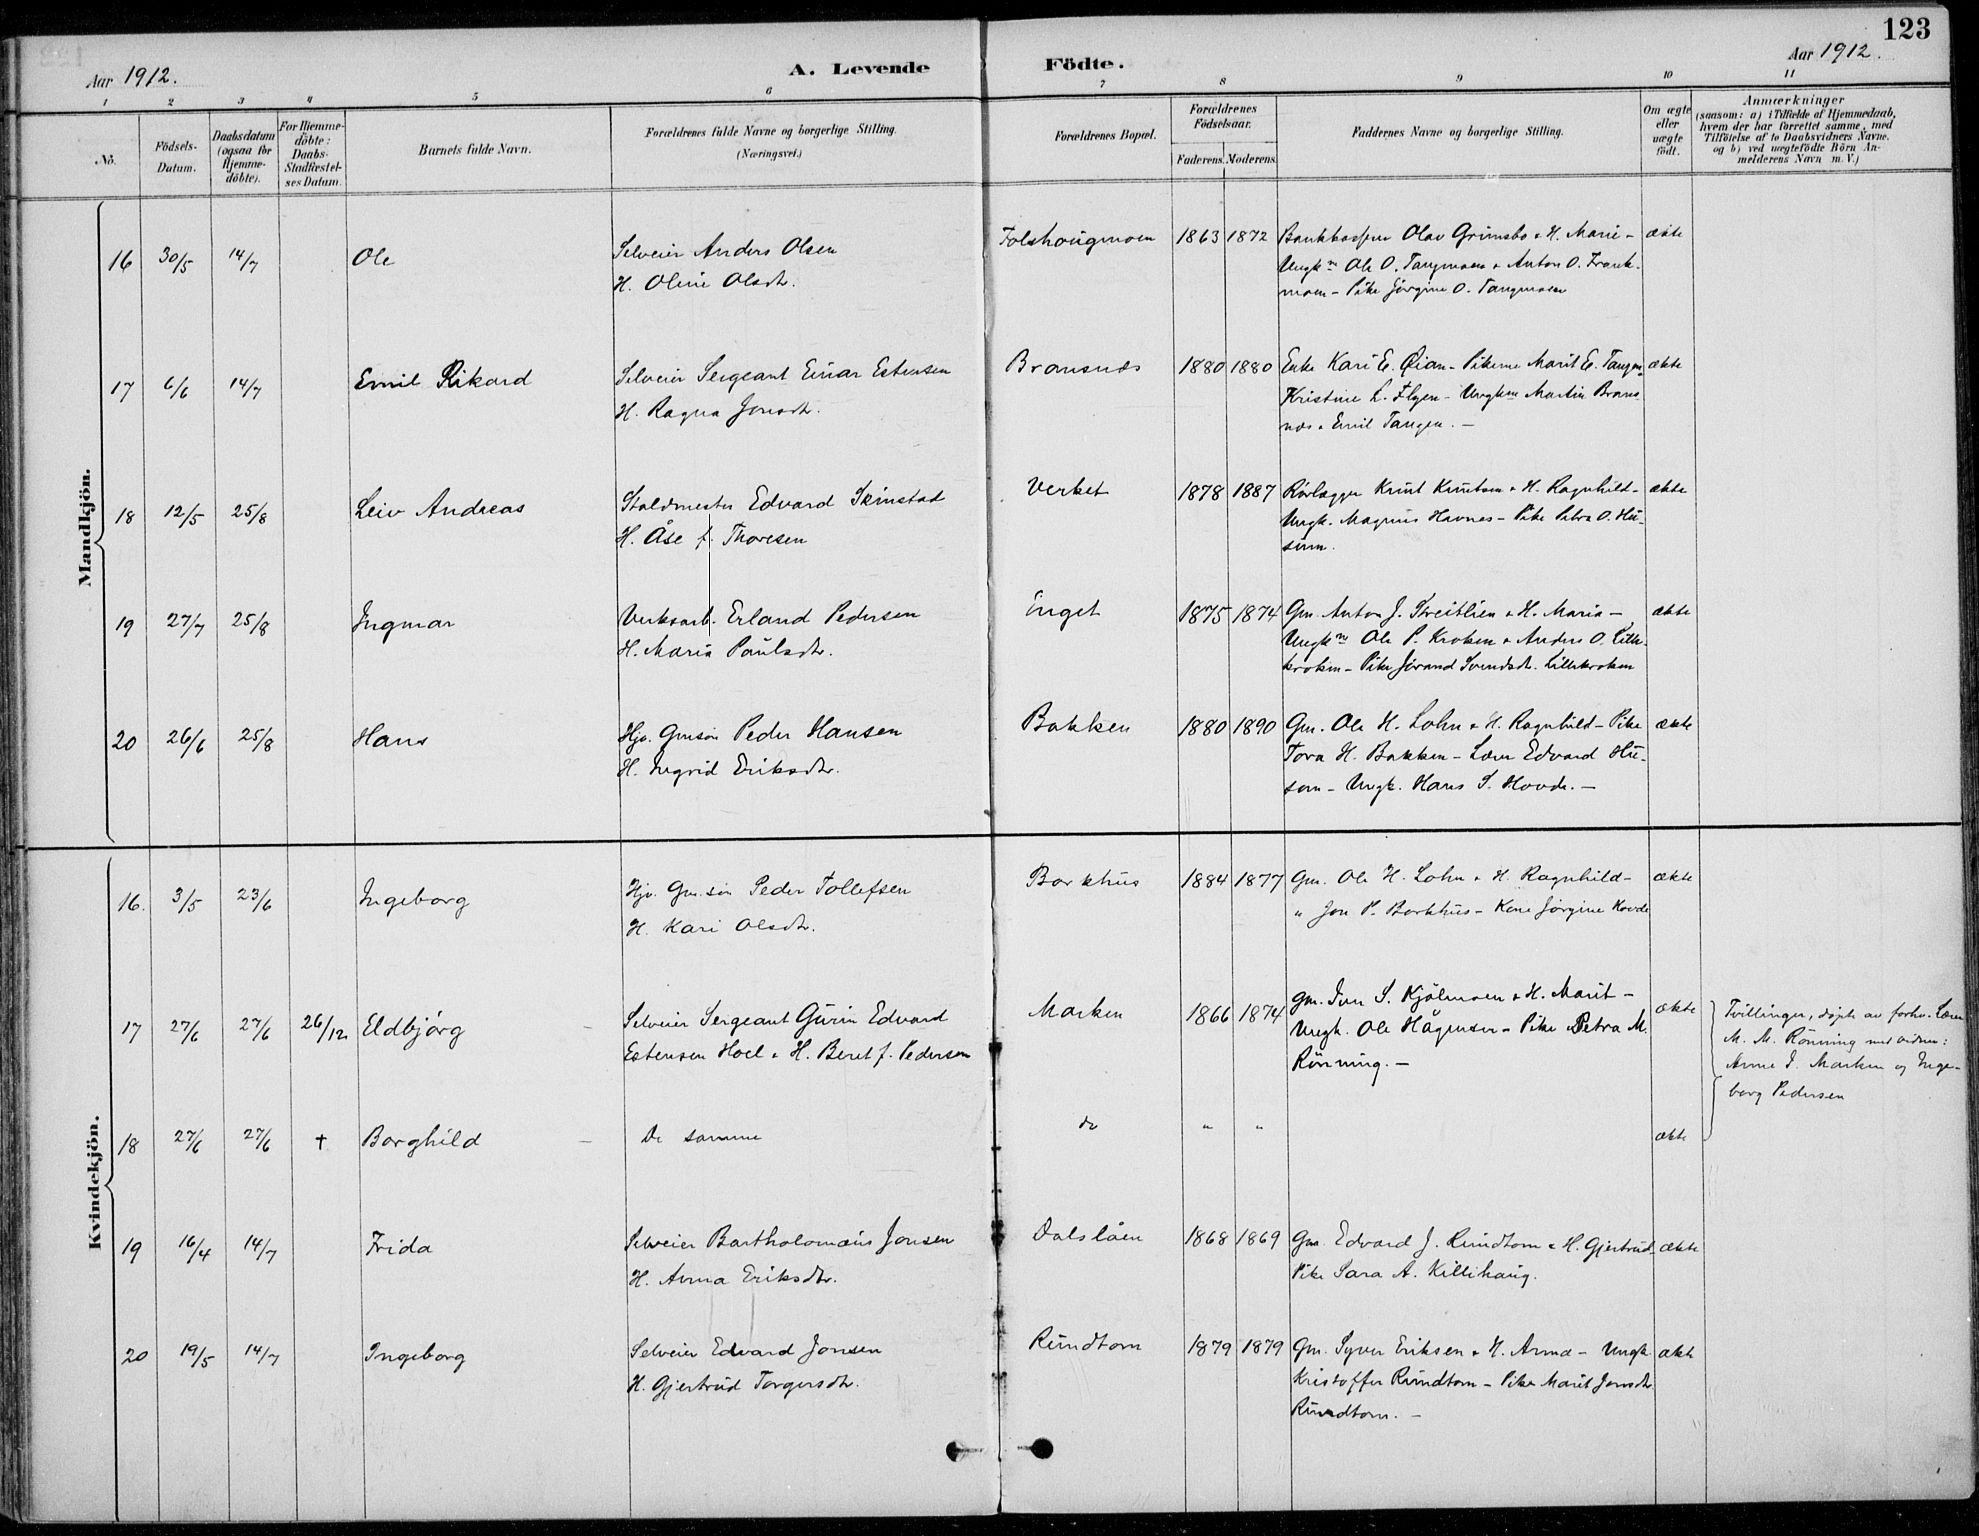 123
Aar 1912.
A. Levende Födte.
Aar 1912.
1 2 3 4 5 6 7 8 9 10 11
No.
Födsels-
Datum.
Daabsdatum
(ogsaa for
Hjemme-
döbte).
For Hjemme-
döbte:
Daabs-
Stadfæstel-
ses Datum.
Barnets fulde Navn.
Forældrenes fulde Navne og borgerlige Stilling.
(Næringsvei.)
Forældrenes Bopæl.
Forældrenes
Födselsaar.
Faderens. Moderens.
Faddernes Navne og borgerlige Stilling.
Om ægte
eller
uægte
födt.
Anmærkninger
(saasom: a) i Tilfælde af Hjemmedaab,
hvem der har forrettet samme, med
Tilföielse af to Daabsvidners Navne.
og b) ved uægtefödte Börn An-
melderens Navn m. V.)
Mandkjön.
16 30/5 14/7 Ole Selveier Anders Olsen Folshougmoen 1863 1872 Olav Grimsbo & H. Marie - ækte
H. Oline Olsdtr. Ungkm Ole O. Tangmoen & Anton O. Frank-
moen - Pike Jörgine O. Tangmoen
17 6/6 14/7 Emil Rikard Selveier Sergeant Einar Estensen Bransnes 1880 1880 Enke Kari E. Øian - Pikerne Marit E. Tangen ækte
H. Ragna Jonsdtr. Kristine L. Flyen - Ungkm Martin Brans-
nes & Emil Tangen. -
18 12/5 25/8 Leiv Andreas Staldmester Edvard Skinstad Verket 1878 1887 Rörlægger Knut Knutsen & H. Ragnhild - ækte
H. Åse f. Thoresen Ungk. Magnus Havnes - Pike Petra O. Hu-
sum.
19 27/7 25/8 Ingmar Verksarb. Erland Pedersen Enget 1875 1874 Gm. Anton J. Streitlien & H. Maria - ækte
H. Maria Paulsdtr. Ungkm Ole P. Kroken & Anders O. Lille-
kroken - Pike Jörand Svendsdtr. Lillekroken
20 26/6 25/8 Hans Hjv. Gmsön Peder Hansen Bakken 1880 1890 Gm. Ole H. Lohn & H. Ragnhild - Pike ækte
H. Ingrid Eriksdtr. Tora H. Bakken - Lærer Edvard Hu-
som - Ungk. Hans S. Hovde. -
Kvindekjön.
16. 3/5 23/6 Ingeborg Hjv. Gm.sön Peder Tollefsen Barkhus 1884 1877 Gm. Ole H. Lohn & H. Ragnhild - ækte
H. Kari Olsdtr. " Jon P. Barkhus - Kone Jörgine Hovde
17 27/6 27/6 26/12 Eldbjörg - Selveier Sergeant Edvard Marken 1866 1874 Gm. Iver S. Kjölmoen & H. Marit - ækte Tvillinger, döpte av forhv. Lærer
Estensen Hoel & H. Beret f. Pedersen Ungk. Ole Hågensen - Pike Petra M. M. M. Rönning med vidner:
Rönning. - Arne I. Marken og Inge-
borg Pedersen
18 27/6 27/6 † Borghild - De samme do " " ækte
19 16/4 14/7 Frida Selveier Bartholomæus Jonsen Dalslåen 1868 1869 Gm. Edvard J. Rundtom & H. Gjertrud - ækte
H. Anna Eriksdtr. Pike Sara A. Killihaug.
20 19/5 14/7 Ingeborg Selveier Edvard Jonsen Rundtom 1879 1879 Gm. Syver Eriksen & H. Anna - Ungk. ækte
H. Gjertrud Torgersdtr. Kristoffer Rundtom - Pike Marit Jonsdtr.
Rundtom. -